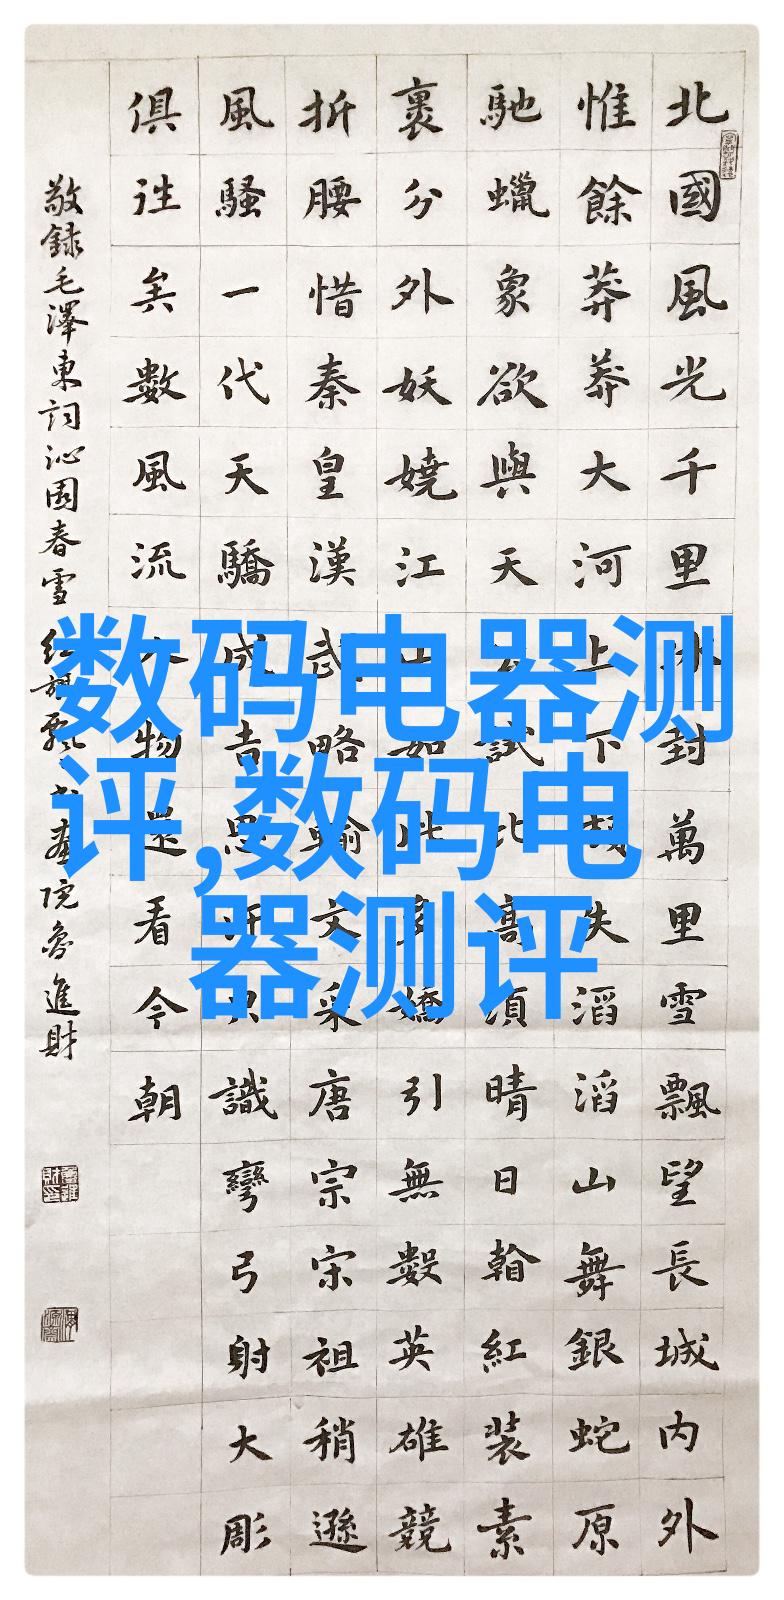 北國風光千里冰封萬里雪飄望長城内外
惟餘莽莽大河上下頓失滔滔山舞銀蛇原
馳蠟象欲與天公試比高須晴日看紅裝素
裹分外妖嬈江山如此多嬌引無數英雄競
折腰惜秦皇漢武略輸文采唐宗宋祖稍遜
風騷一代天驕成吉思汗只識彎弓射大彫
俱往矣數風流人物還看今朝
敬録毛澤東詞沁園春雪 紅旗飄飄書畫院魯進財
数码电器测
评,数码电
器测评